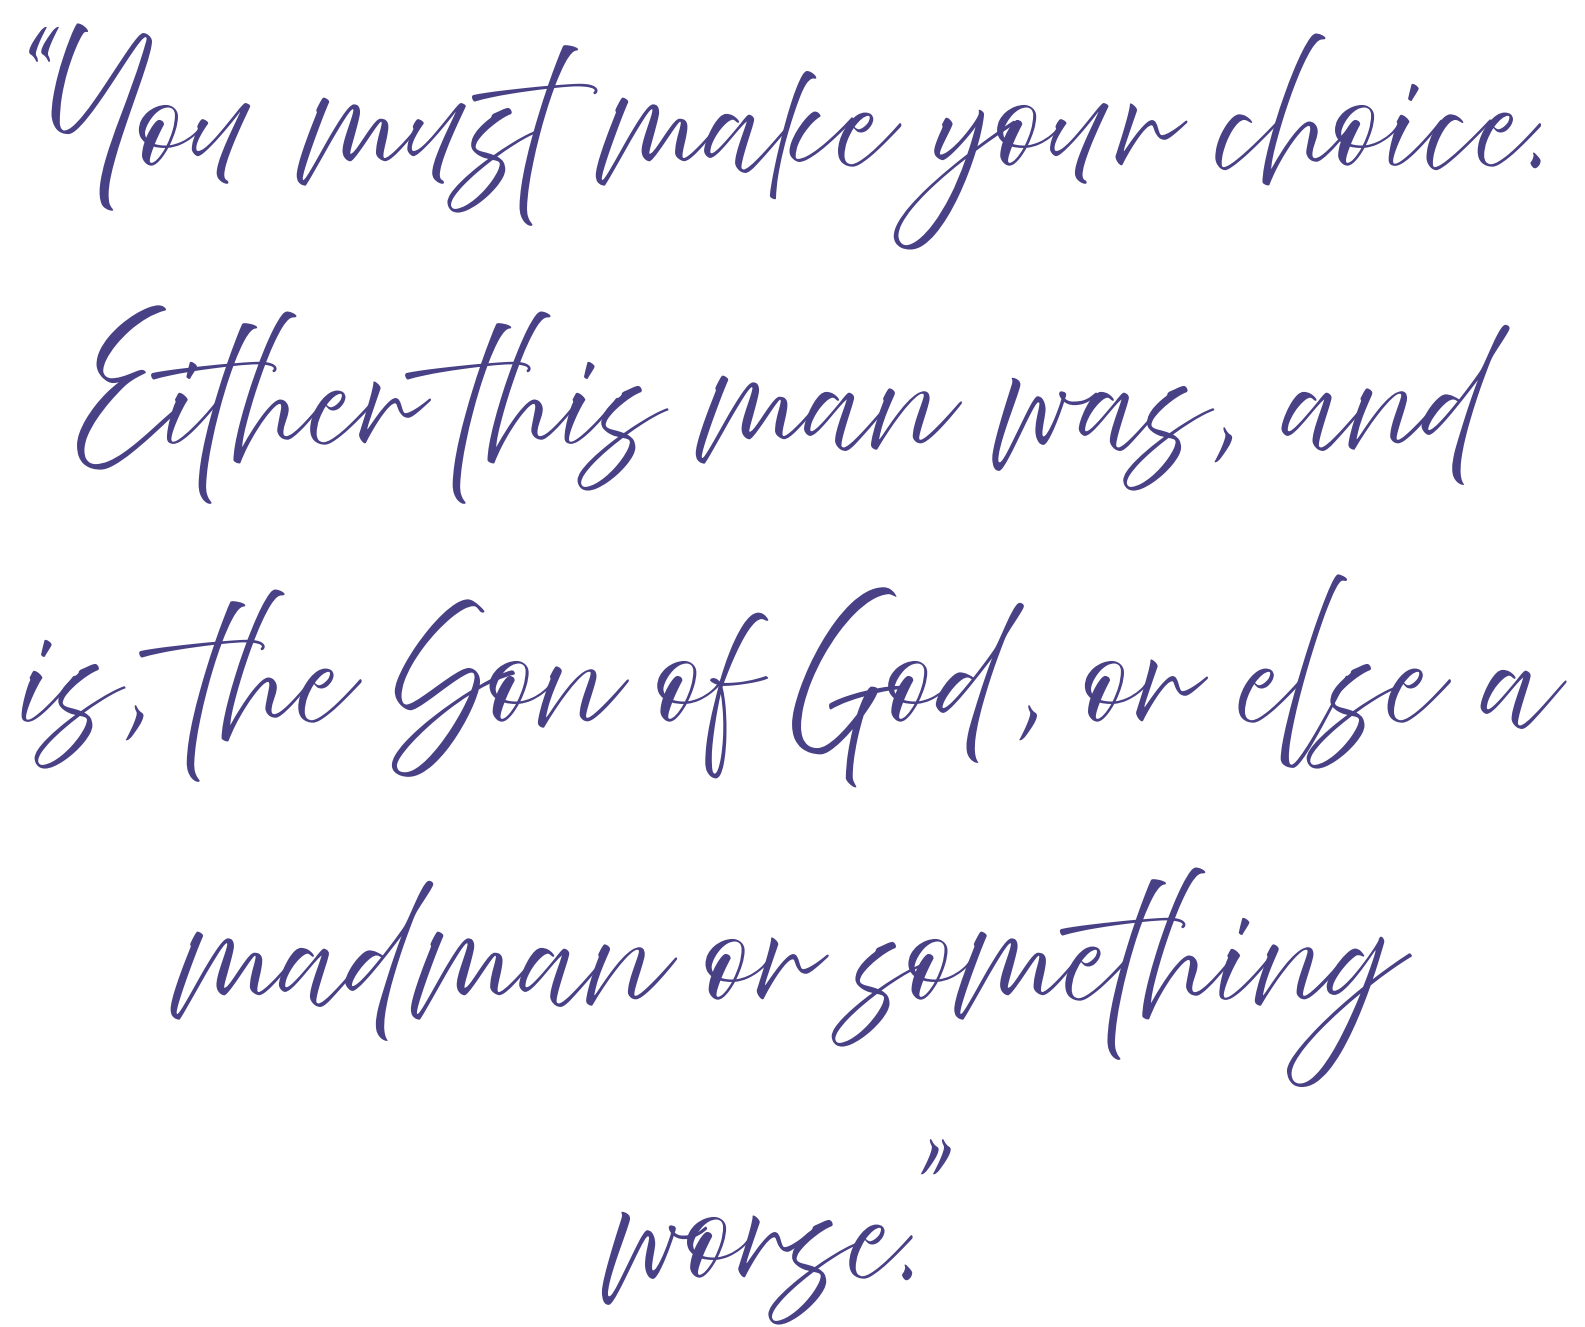 “You must make your choice.
Either this man was, and
is, the Son of God, or else a
madman or something
worse.”